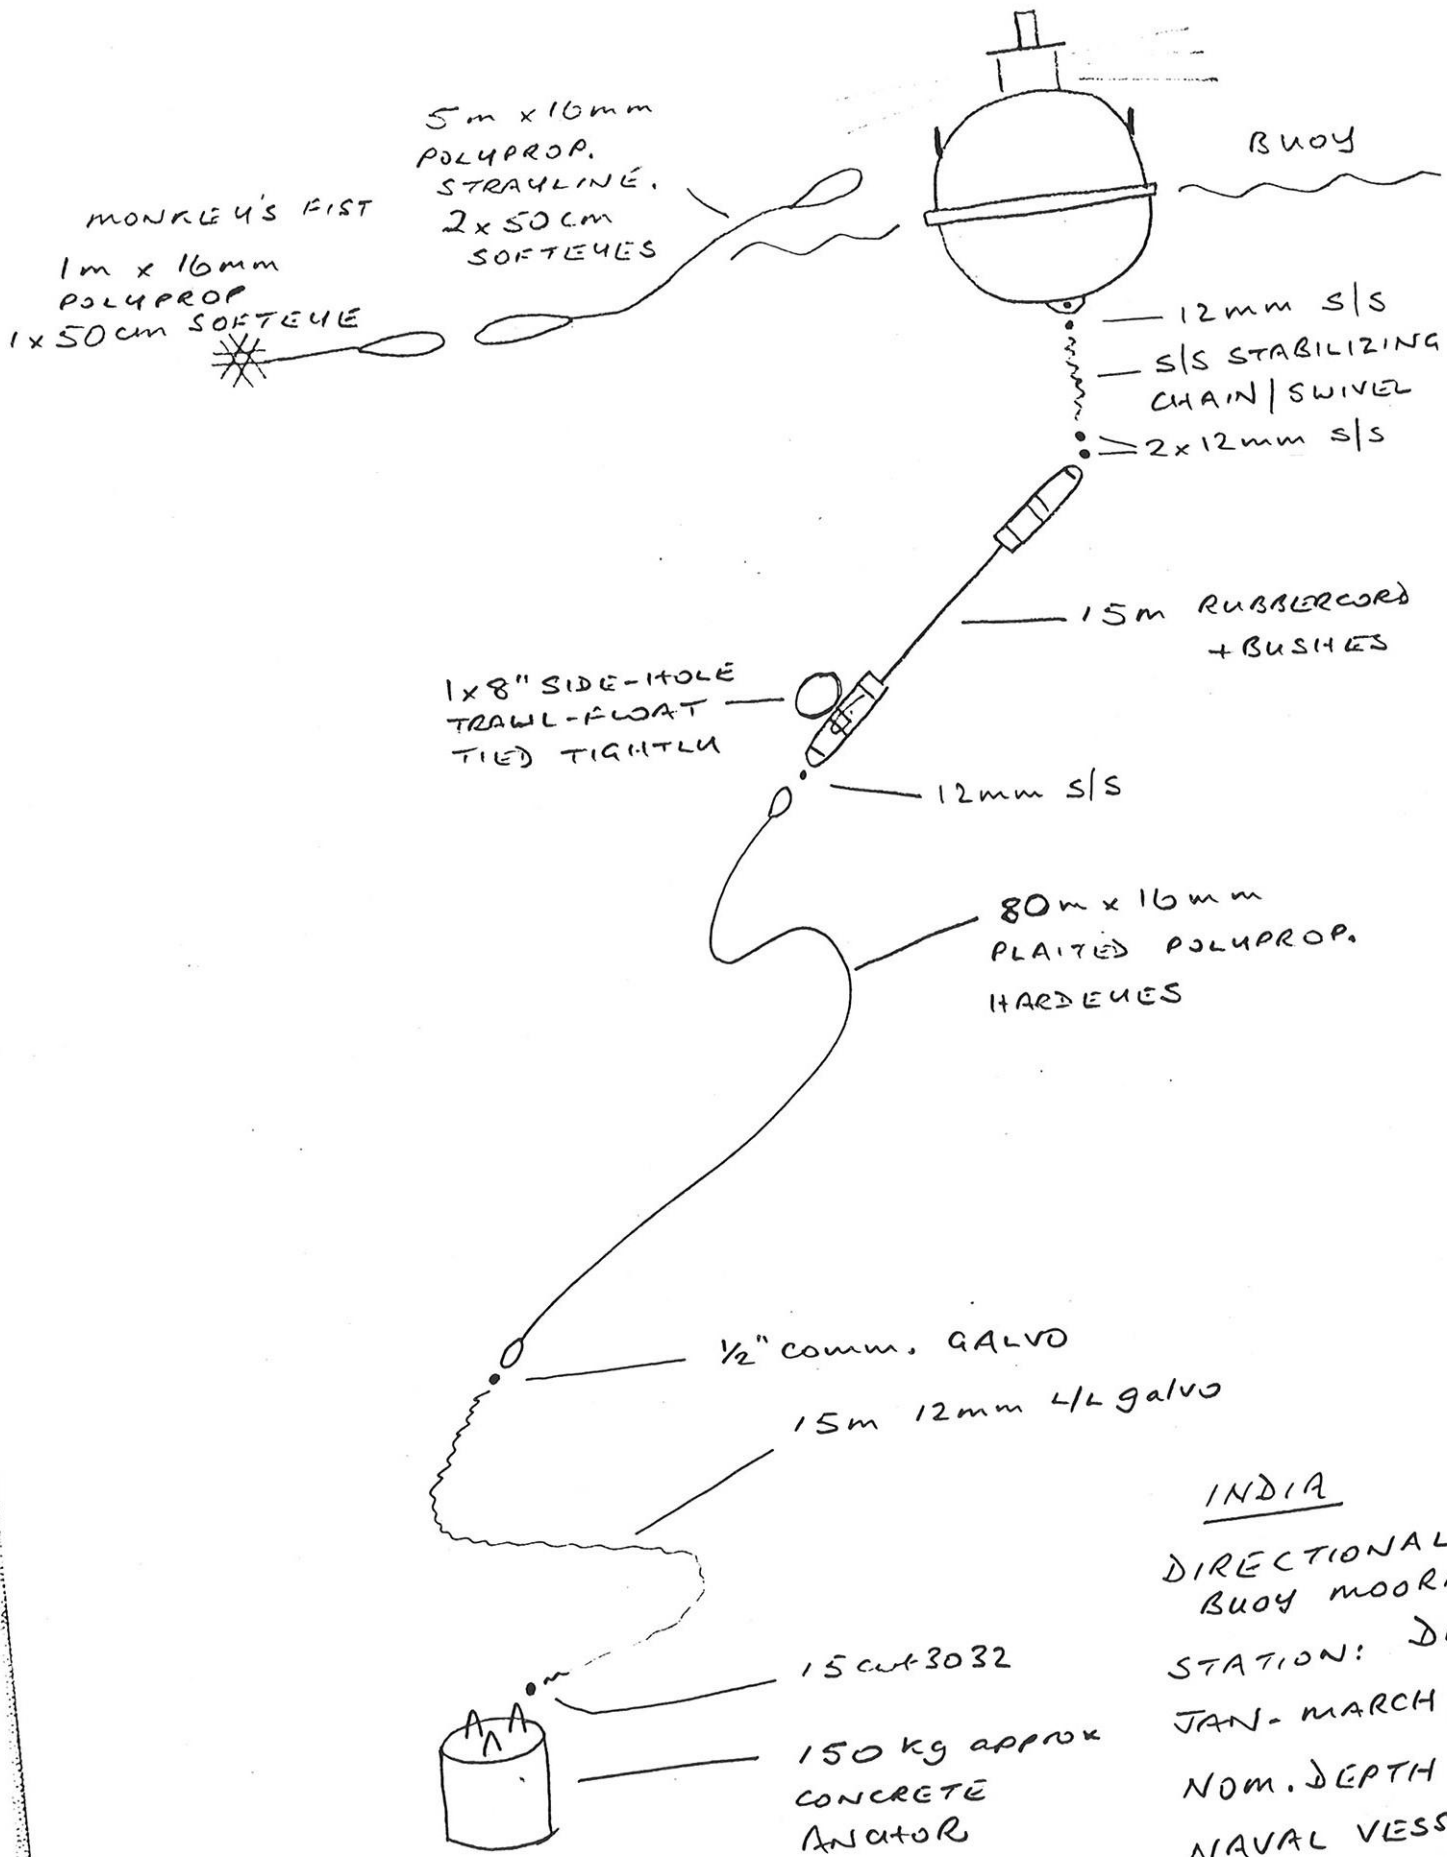 5m x 16mm
POLYPROP.
STRAYLINE.
2 x 50cm
SOFTEYES
MONKEY'S FIST
1m x 16mm
POLYPROP
1 x 50cm SOFTEYE
BUOY
12mm S/S
S/S STABILIZING
CHAIN/SWIVEL
2x12mm S/S
15m RUBBERCORD
+ BUSHES
1x8" SIDE-HOLE
TRAWL-FLOAT
TIED TIGHTLY
12mm S/S
80m x 16mm
PLAITED POLYPROP.
HARDEYES
1/2" comm. GALVO
15m 12mm L/L galvo
15cwt 3032
150 kg approx
CONCRETE
ANCHOR
INDIA
DIRECTIONAL
BUOY MOOR
STATION:
JAN-MARCH
NOM. DEPTH
NAVAL